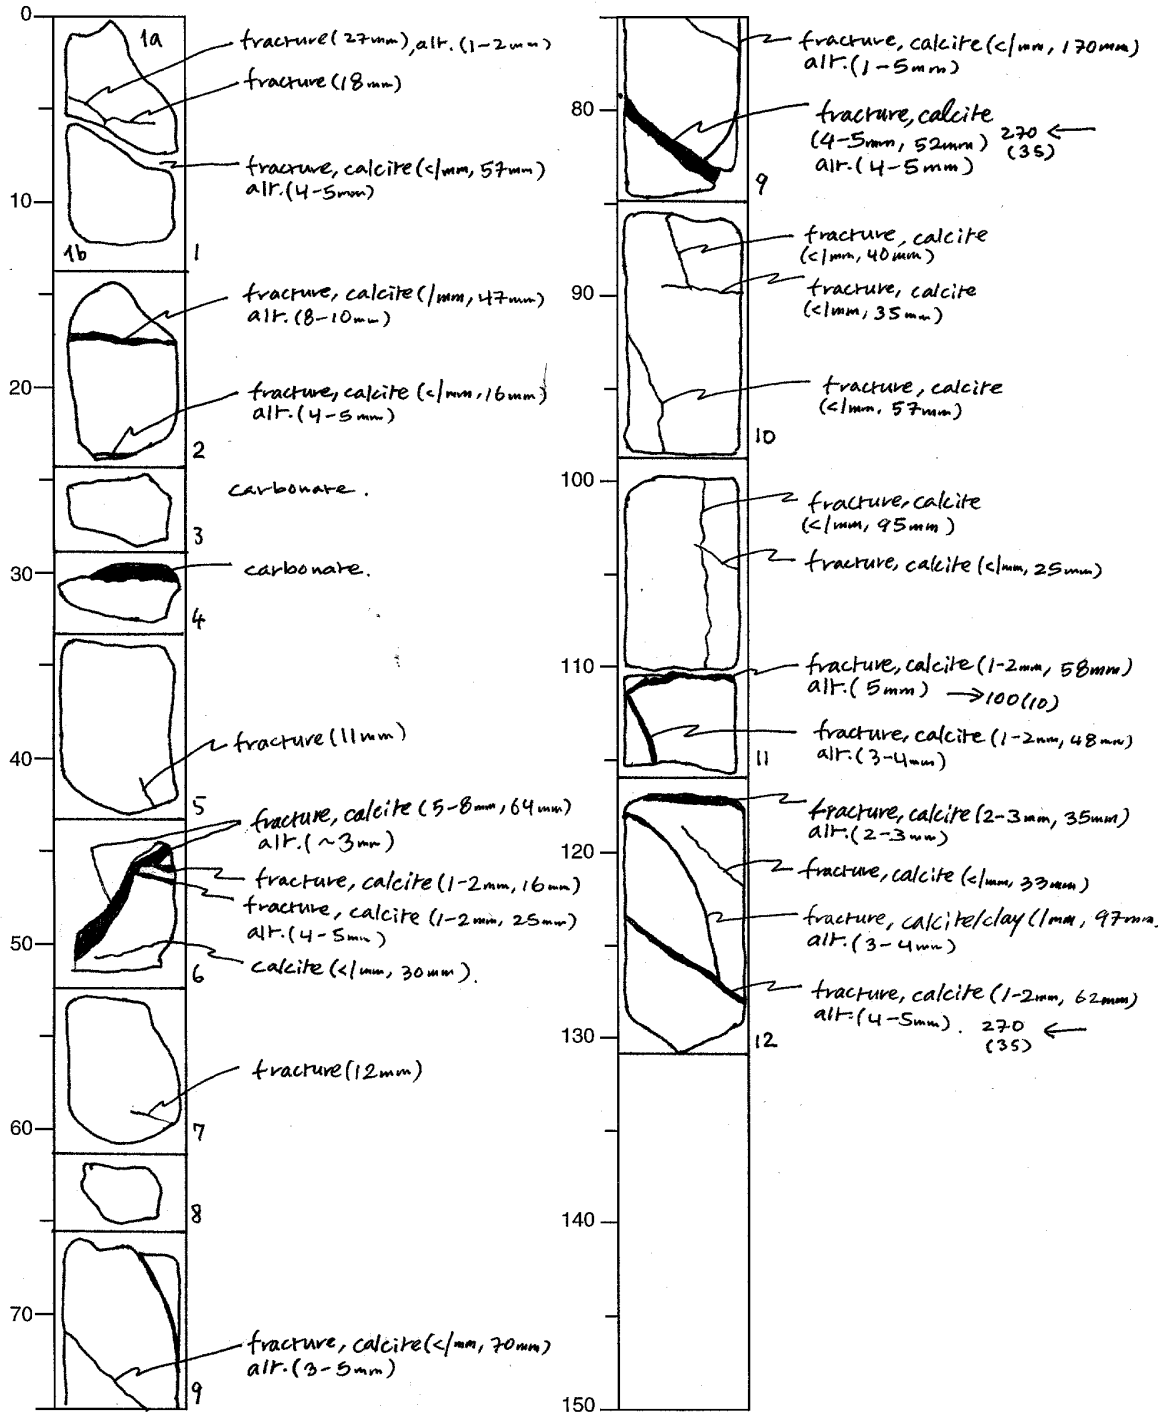 0
1a
fracture (27mm), alt. (1-2mm)
fracture (18mm)
fracture, calcite (<1mm, 57mm)
alt. (4-5mm)
10
1b
1
fracture, calcite (1mm, 47mm)
alt. (8-10mm)
20
fracture, calcite (<1mm, 16mm)
alt. (4-5mm)
2
carbonate.
3
30
carbonate.
4
fracture (11mm)
40
5
fracture, calcite (5-8mm, 64mm)
alt. (~3mm)
fracture, calcite (1-2mm, 16mm)
fracture, calcite (1-2mm, 25mm)
alt. (4-5mm)
50
calcite (<1mm, 30mm).
6
fracture (12mm)
60
7
8
70
fracture, calcite (<1mm, 70mm)
alt. (3-5mm)
9
fracture, calcite (<1mm, 170mm)
alt. (1-5mm)
80
fracture, calcite
(4-5mm, 52mm) 270 ←
(35)
alt. (4-5mm)
9
fracture, calcite
(<1mm, 40mm)
90
fracture, calcite
(<1mm, 35mm)
fracture, calcite
(<1mm, 57mm)
10
100
fracture, calcite
(<1mm, 95mm)
fracture, calcite (<1mm, 25mm)
110
fracture, calcite (1-2mm, 58mm)
alt. (5mm) → 100 (10)
fracture, calcite (1-2mm, 48mm)
alt. (3-4mm)
11
fracture, calcite (2-3mm, 35mm)
alt. (2-3mm)
120
fracture, calcite (<1mm, 33mm)
fracture, calcite/clay (1mm, 97mm.
alt. (3-4mm)
fracture, calcite (1-2mm, 62mm)
alt. (4-5mm). 270 ←
(35)
130
12
140
150